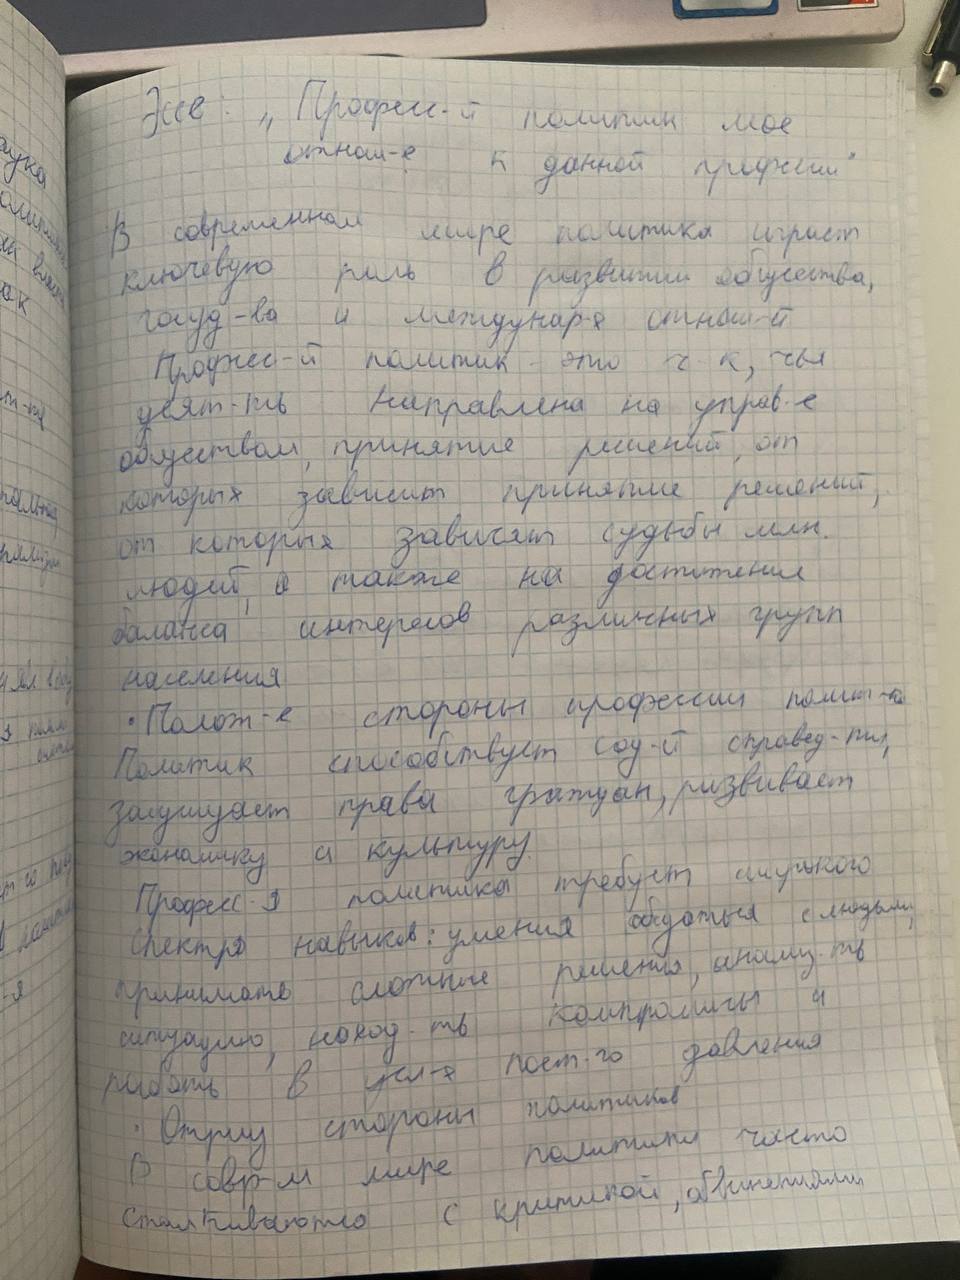 Эссе: „Професс-й политик мое
отнош-е к данной профессии"
В современном мире политика играет
ключевую роль в развитии общества,
госуд-ва и междунар-х отнош-й
Професс-й политик - это ч-к, чья
деят-ть направлена на управ-е
обществом, принятие решений, от
которых зависит принятие решений,
от которых зависят судьбы млн.
людей, а также на достижение
баланса интересов различных групп
населения
• Полож-е стороны профессии полит-ка
Политик способствует соц-й справед-ти,
защищает права граждан, развивает
экономику и культуру.
Професс-я политика требует широкого
спектра навыков: умения общаться с людьми,
принимать сложные решения, анализ-ть
ситуацию, наход-ть компромиссы и
работь в усл-х пост-го давления
• Отриц стороны политиков
В совр-м мире политики часто
сталкиваются с критикой, обвинениями
наука
ак